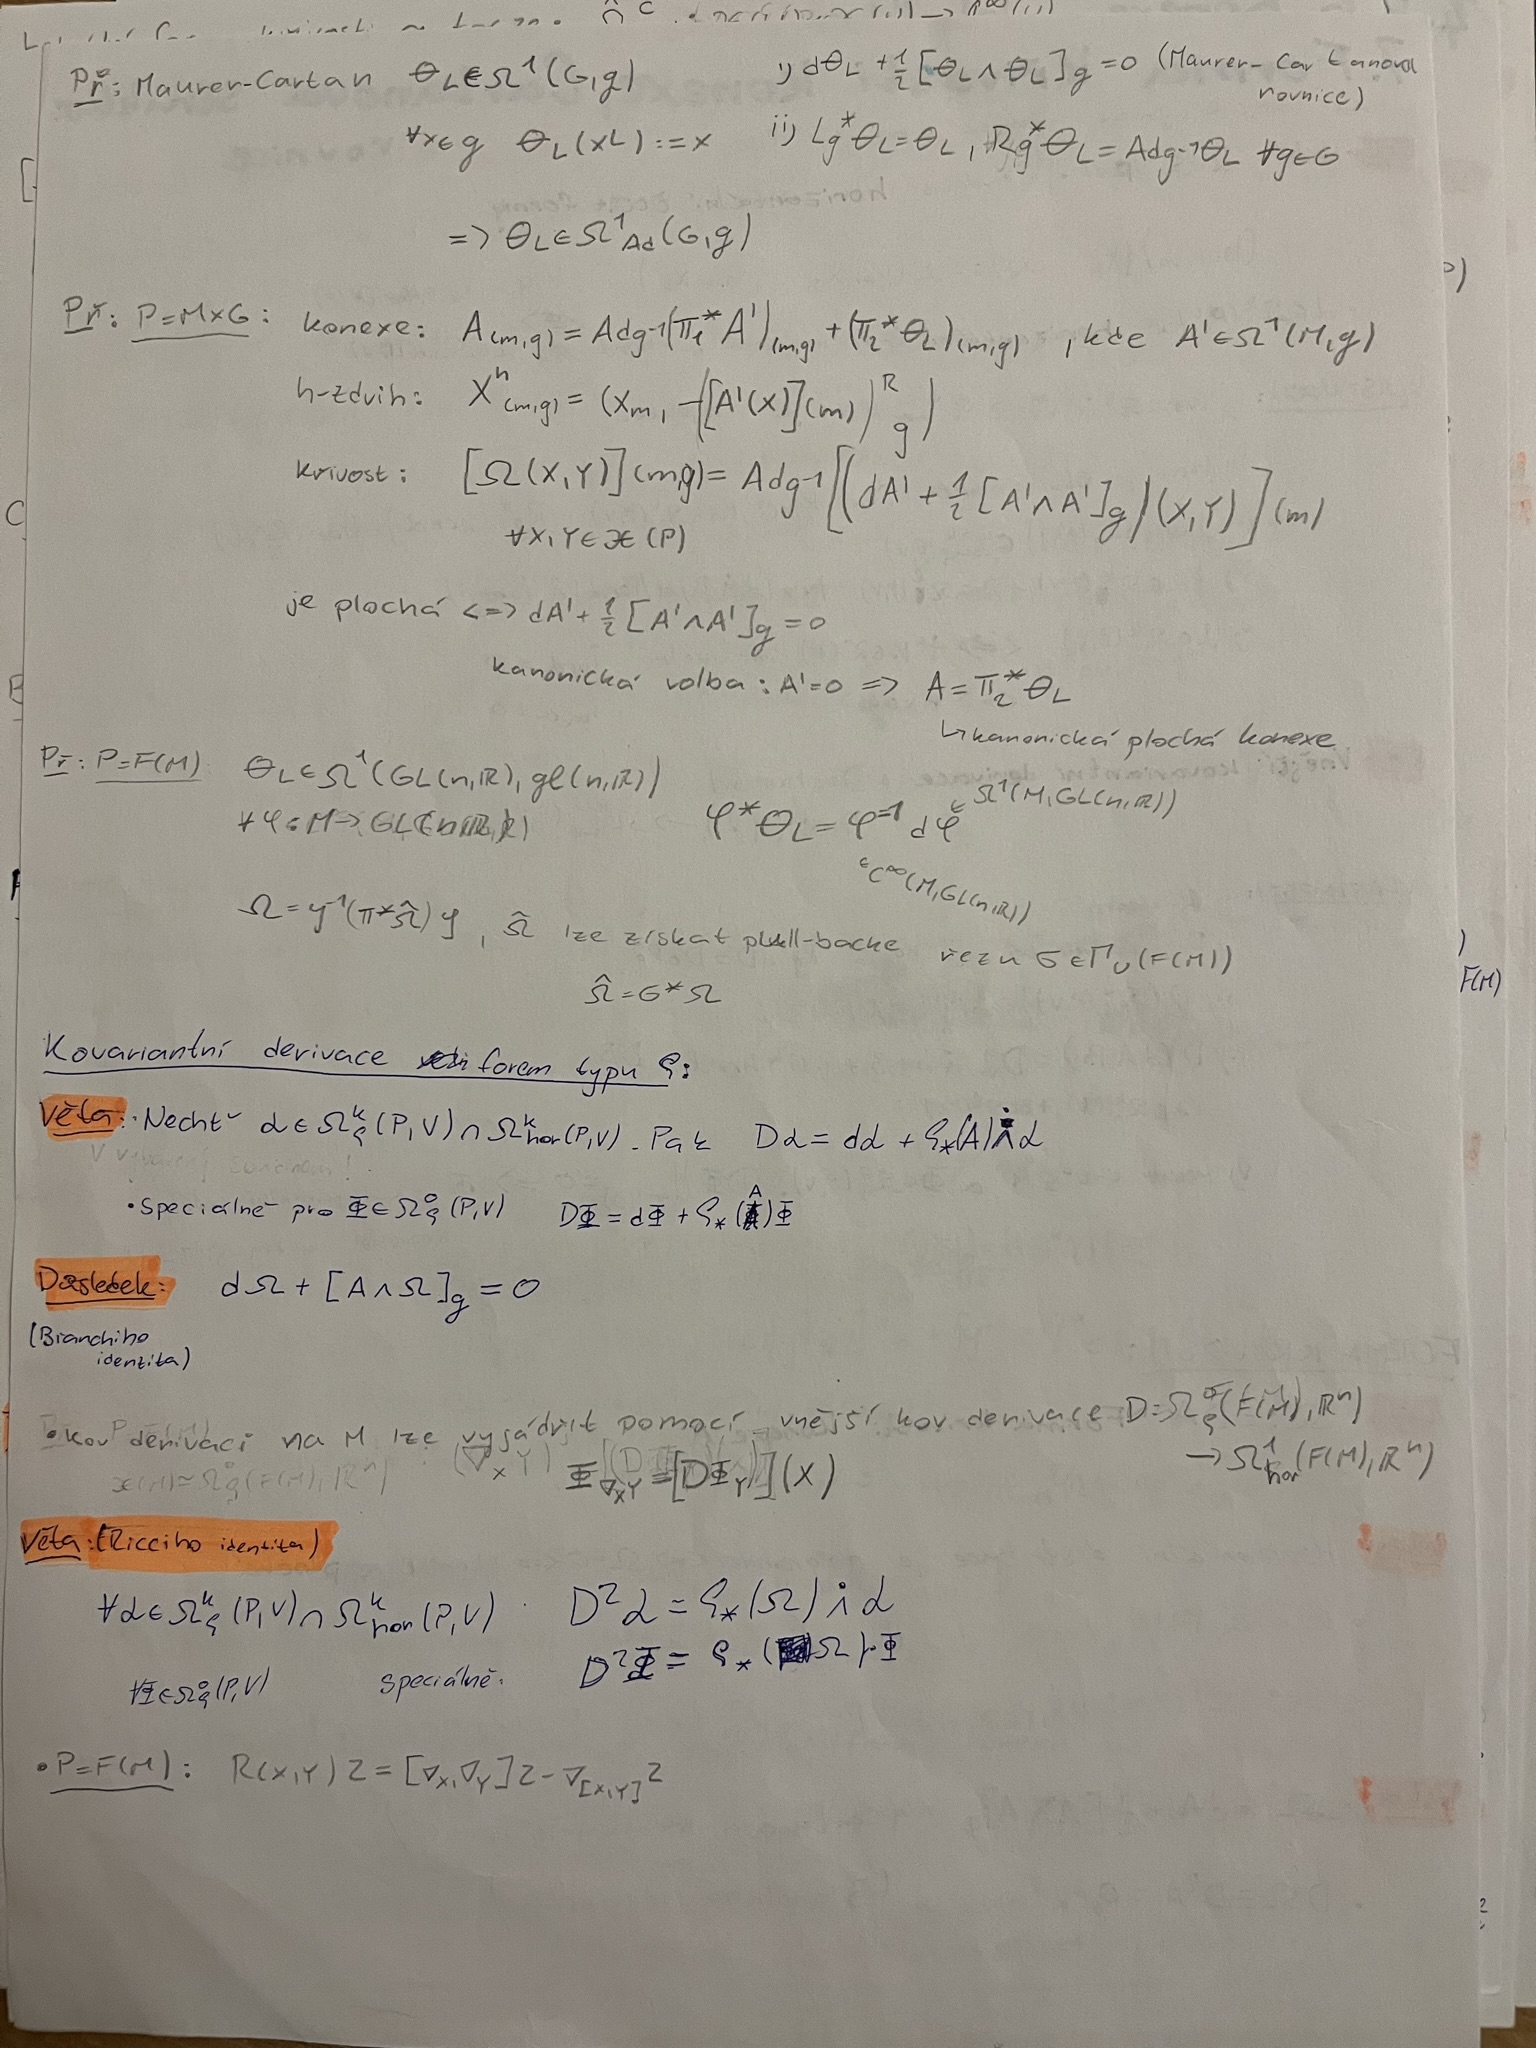 Př: Maurer-Cartan θ_L ∈ Ω¹(G,g) i) dθ_L + ½[θ_L ∧ θ_L]_g = 0 (Maurer-Cartanova rovnice)
∀x∈g θ_L(x^L) := x ii) Lg*θ_L = θ_L, Rg*θ_L = Adg⁻¹θ_L ∀g∈G
=> θ_L ∈ Ω¹_Ad(G,g)
Př: P=M×G: konexe: A_(m,g) = Adg⁻¹(π₁*A')_(m,g) + (π₂*θ_L)_(m,g), kde A' ∈ Ω¹(M,g)
h-zdvih: X^h_(m,g) = (X_m, -([A'(X)](m))^R_g)
křivost: [Ω(X,Y)](m,g) = Adg⁻¹[(dA' + ½[A'∧A']_g)(X,Y)](m)
∀X,Y∈𝔛(P)
je plochá <=> dA' + ½[A'∧A']_g = 0
kanonická volba: A'=0 => A = π₂*θ_L
↳ kanonická plochá konexe
Př: P=F(M) θ_L ∈ Ω¹(GL(n,R), gl(n,R))
∀φ: M → GL(n,R) φ*θ_L = φ⁻¹ dφ ∈ Ω¹(M,GL(n,R))
∈ C^∞(M,GL(n,R))
Ω = y⁻¹(π*Ω̂)y, Ω̂ lze získat pull-backe řezu σ∈Γ_U(F(M))
Ω̂ = σ*Ω
Kovariantní derivace forem typu ρ:
Věta: · Nechť α ∈ Ω^k_ρ(P,V) ∩ Ω^k_hor(P,V). Pak Dα = dα + ρ_*(A) ∧̇ α
• Speciálně pro Φ ∈ Ω⁰_ρ(P,V) DΦ = dΦ + ρ_*(A)Φ
Důsledek: dΩ + [A∧Ω]_g = 0
(Branchiho
identita)
• kov derivaci na M lze vyjádřit pomocí vnější kov derivace D: Ω⁰_ρ(F(M),Rⁿ)
→ Ω¹_hor(F(M),Rⁿ)
𝔛(M) ≃ Ω⁰_ρ(F(M),Rⁿ) Φ_∇xY = [DΦ_Y](X)
Věta: (Ricciho identita)
∀α ∈ Ω^k_ρ(P,V) ∩ Ω^k_hor(P,V) D²α = ρ_*(Ω) ∧̇ α
∀Φ∈Ω⁰_ρ(P,V) speciálně: D²Φ = ρ_*(Ω)·Φ
• P=F(M): R(X,Y)Z = [∇_X,∇_Y]Z - ∇_[X,Y]Z
F(M)